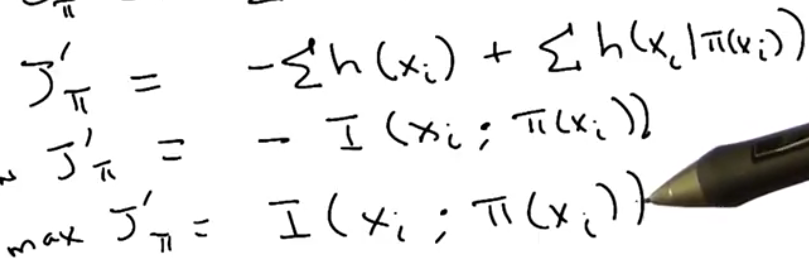 π
J'π = -Σh(xᵢ) + Σh(xᵢ|π(xᵢ))
J'π = - I(xᵢ; π(xᵢ))
max J'π = I(xᵢ; π(xᵢ))